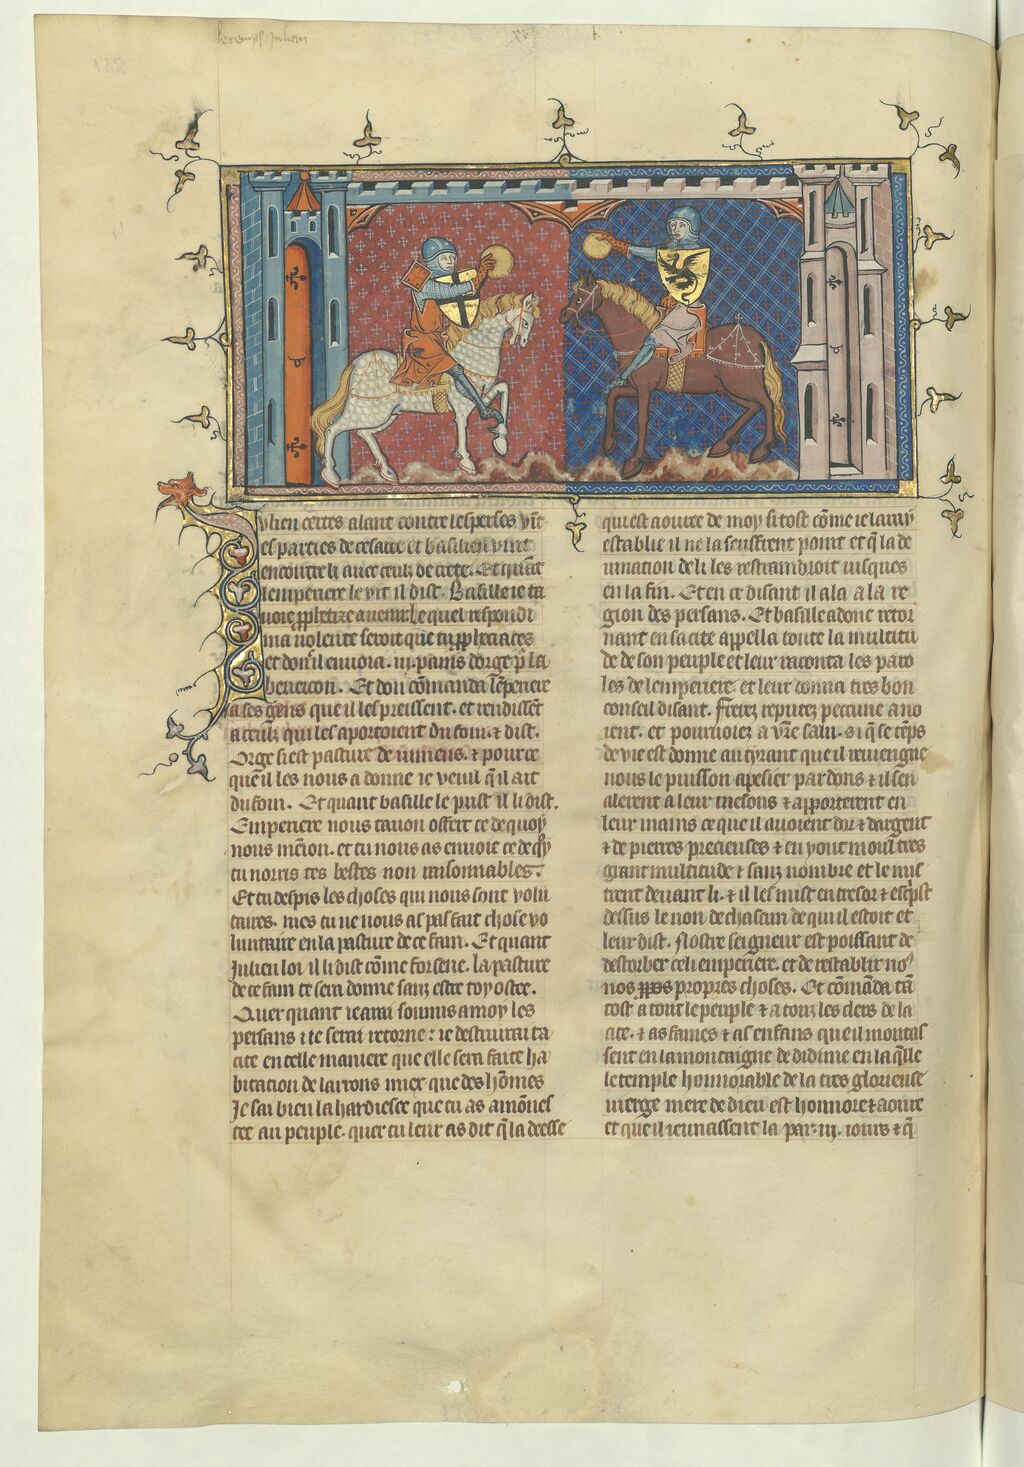 le temps Julien
xv
Julien certes alant contre les perses vīt
es parties de cesaire et basilien vint
encontre li auec ceulz de crete. Et quāt
lempereire le vit il dist. Basille ie ta
uoie
ma volente seroit que tu
et don il enuoia .iij. pains dorge pͬ la
beneicon. Et don cōmanda lēpereire
a ses gens que il les preissent. et rendissēt
a ceulz qui les aportoient du foin. ⁊ dist.
Orge si est pasture de iumens. ⁊ pource
que il les nous a donne ie veuil q̄ il ait
du foin. Et quant basille le prist il li dist.
Empereire nous tauon offert ce de quoy
nous mēion. et tu nous as enuoie ce de q̄y
tu norris tes bestes non raisonnables.
Et tu despis les choses qui nous sont volū
taires. mes tu ne nous as pas fait chose vo
luntaire en la pasture de ce fain. Et quant
Julien loi il li dist cōme forsene. la pasture
de ce fain te sera donne sanz estre toy ostee.
Quer quant iearai soumis a moy les
persans ⁊ ie serai retorne: ie destruirai ta
cite en telle maniere que elle sera faite ha
bitacion de larrons miex que des hōmes
Je sai bien la hardiesce que tu as amōnes
tee au peuple. quer tu leur as dit q̄ la deesse
qui est aouree de moy si tost cōme ie laray
establie il ne la seuffrent point et q̄ la de
uination de li les restraindroit iusques
en la fin. Et en ce disant il ala a la re
gion des persans. Et basille adonc retor
nant en sa cite appella toute la multitu
de de son peuple et leur raconta les paro
les de lempereire. et leur donna tres bon
conseil disant. Freres reputez peccune a no
ient. et pouruoiez a vr̄e salu. si q̄ se tēps
de vie est donne au tyrant que il reuiengne
nous le puisson apesier par dons ⁊ il sen
alerent a leur mesons ⁊ apporterent en
leur mains ce que il auoient dor ⁊ dargent
⁊ de pierres precieuses ⁊ en y out moult tres
grant multitude ⁊ sanz nombre et le mis
trent deuant li. ⁊ il les mist en tresor ⁊ escrist
dessus le non de chascun de qui il estoit et
leur dist. Nostre seigneur est poissant de
destorber celi empereire. et de restablir no⁹
nos propres choses. Et cōmāda tā
tost a tout le peuple ⁊ a touz les clers de la
cite. ⁊ as fames ⁊ as enfans que il montas
sent en la montaigne de didime en la q̄lle
le temple honnorable de la tres glorieuse
vierge mere de dieu est honnore ⁊ aoure
et que il ieunassent la par .iij. iours ⁊ q̄